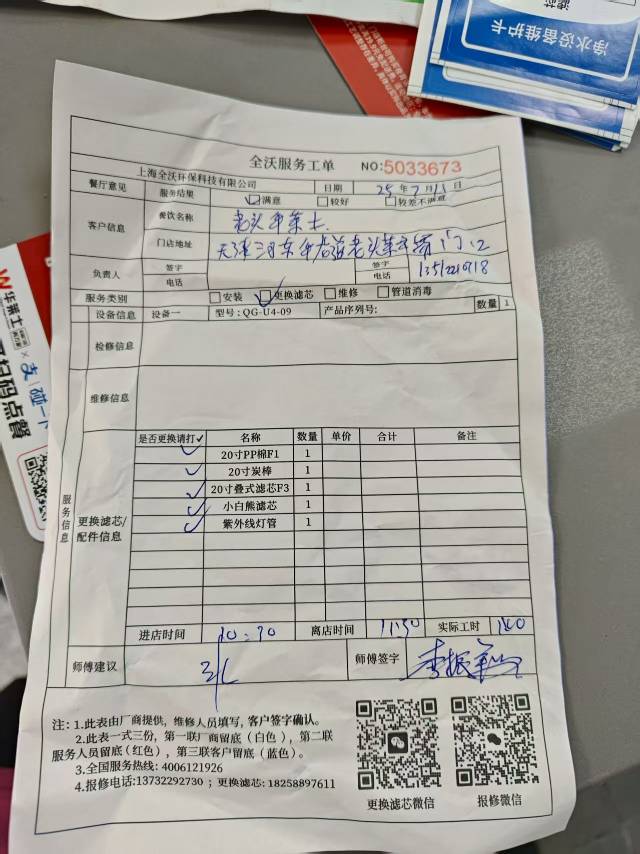 净水设备维护卡
滤芯
全沃服务工单 NO:5033673
上海全沃环保科技有限公司 日期 25年7月11日
餐厅意见 服务结果 ☑满意 □较好 □较差不满意
客户信息 餐饮名称
门店地址 天津河东
负责人 签字 签字
电话 电话
服务类别 □安装 ☑更换滤芯 □维修 □管道消毒
设备信息 设备一 型号:QG-U4-09 产品序列号: 数量 1
检修信息
维修信息
服务信息
更换滤芯/配件信息
是否更换请打✓ 名称 数量 单价 合计 备注
✓ 20寸PP棉F1 1
✓ 20寸炭棒 1
✓ 20寸叠式滤芯F3 1
✓ 小白熊滤芯 1
✓ 紫外线灯管 1
进店时间 10:30 离店时间 11:50 实际工时
师傅建议 师傅签字
注:1.此表由厂商提供，维修人员填写，客户签字确认。
2.此表一式三份，第一联厂商留底（白色），第二联
服务人员留底（红色），第三联客户留底（蓝色）。
3.全国服务热线: 4006121926
4.报修电话:13732292730 ；更换滤芯: 18258897611
更换滤芯微信 报修微信
华莱士
支 碰一下
扫码点餐